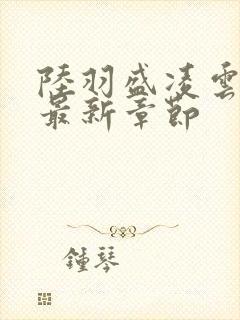 陸羽盛凌雲
最新章節
鍾琴